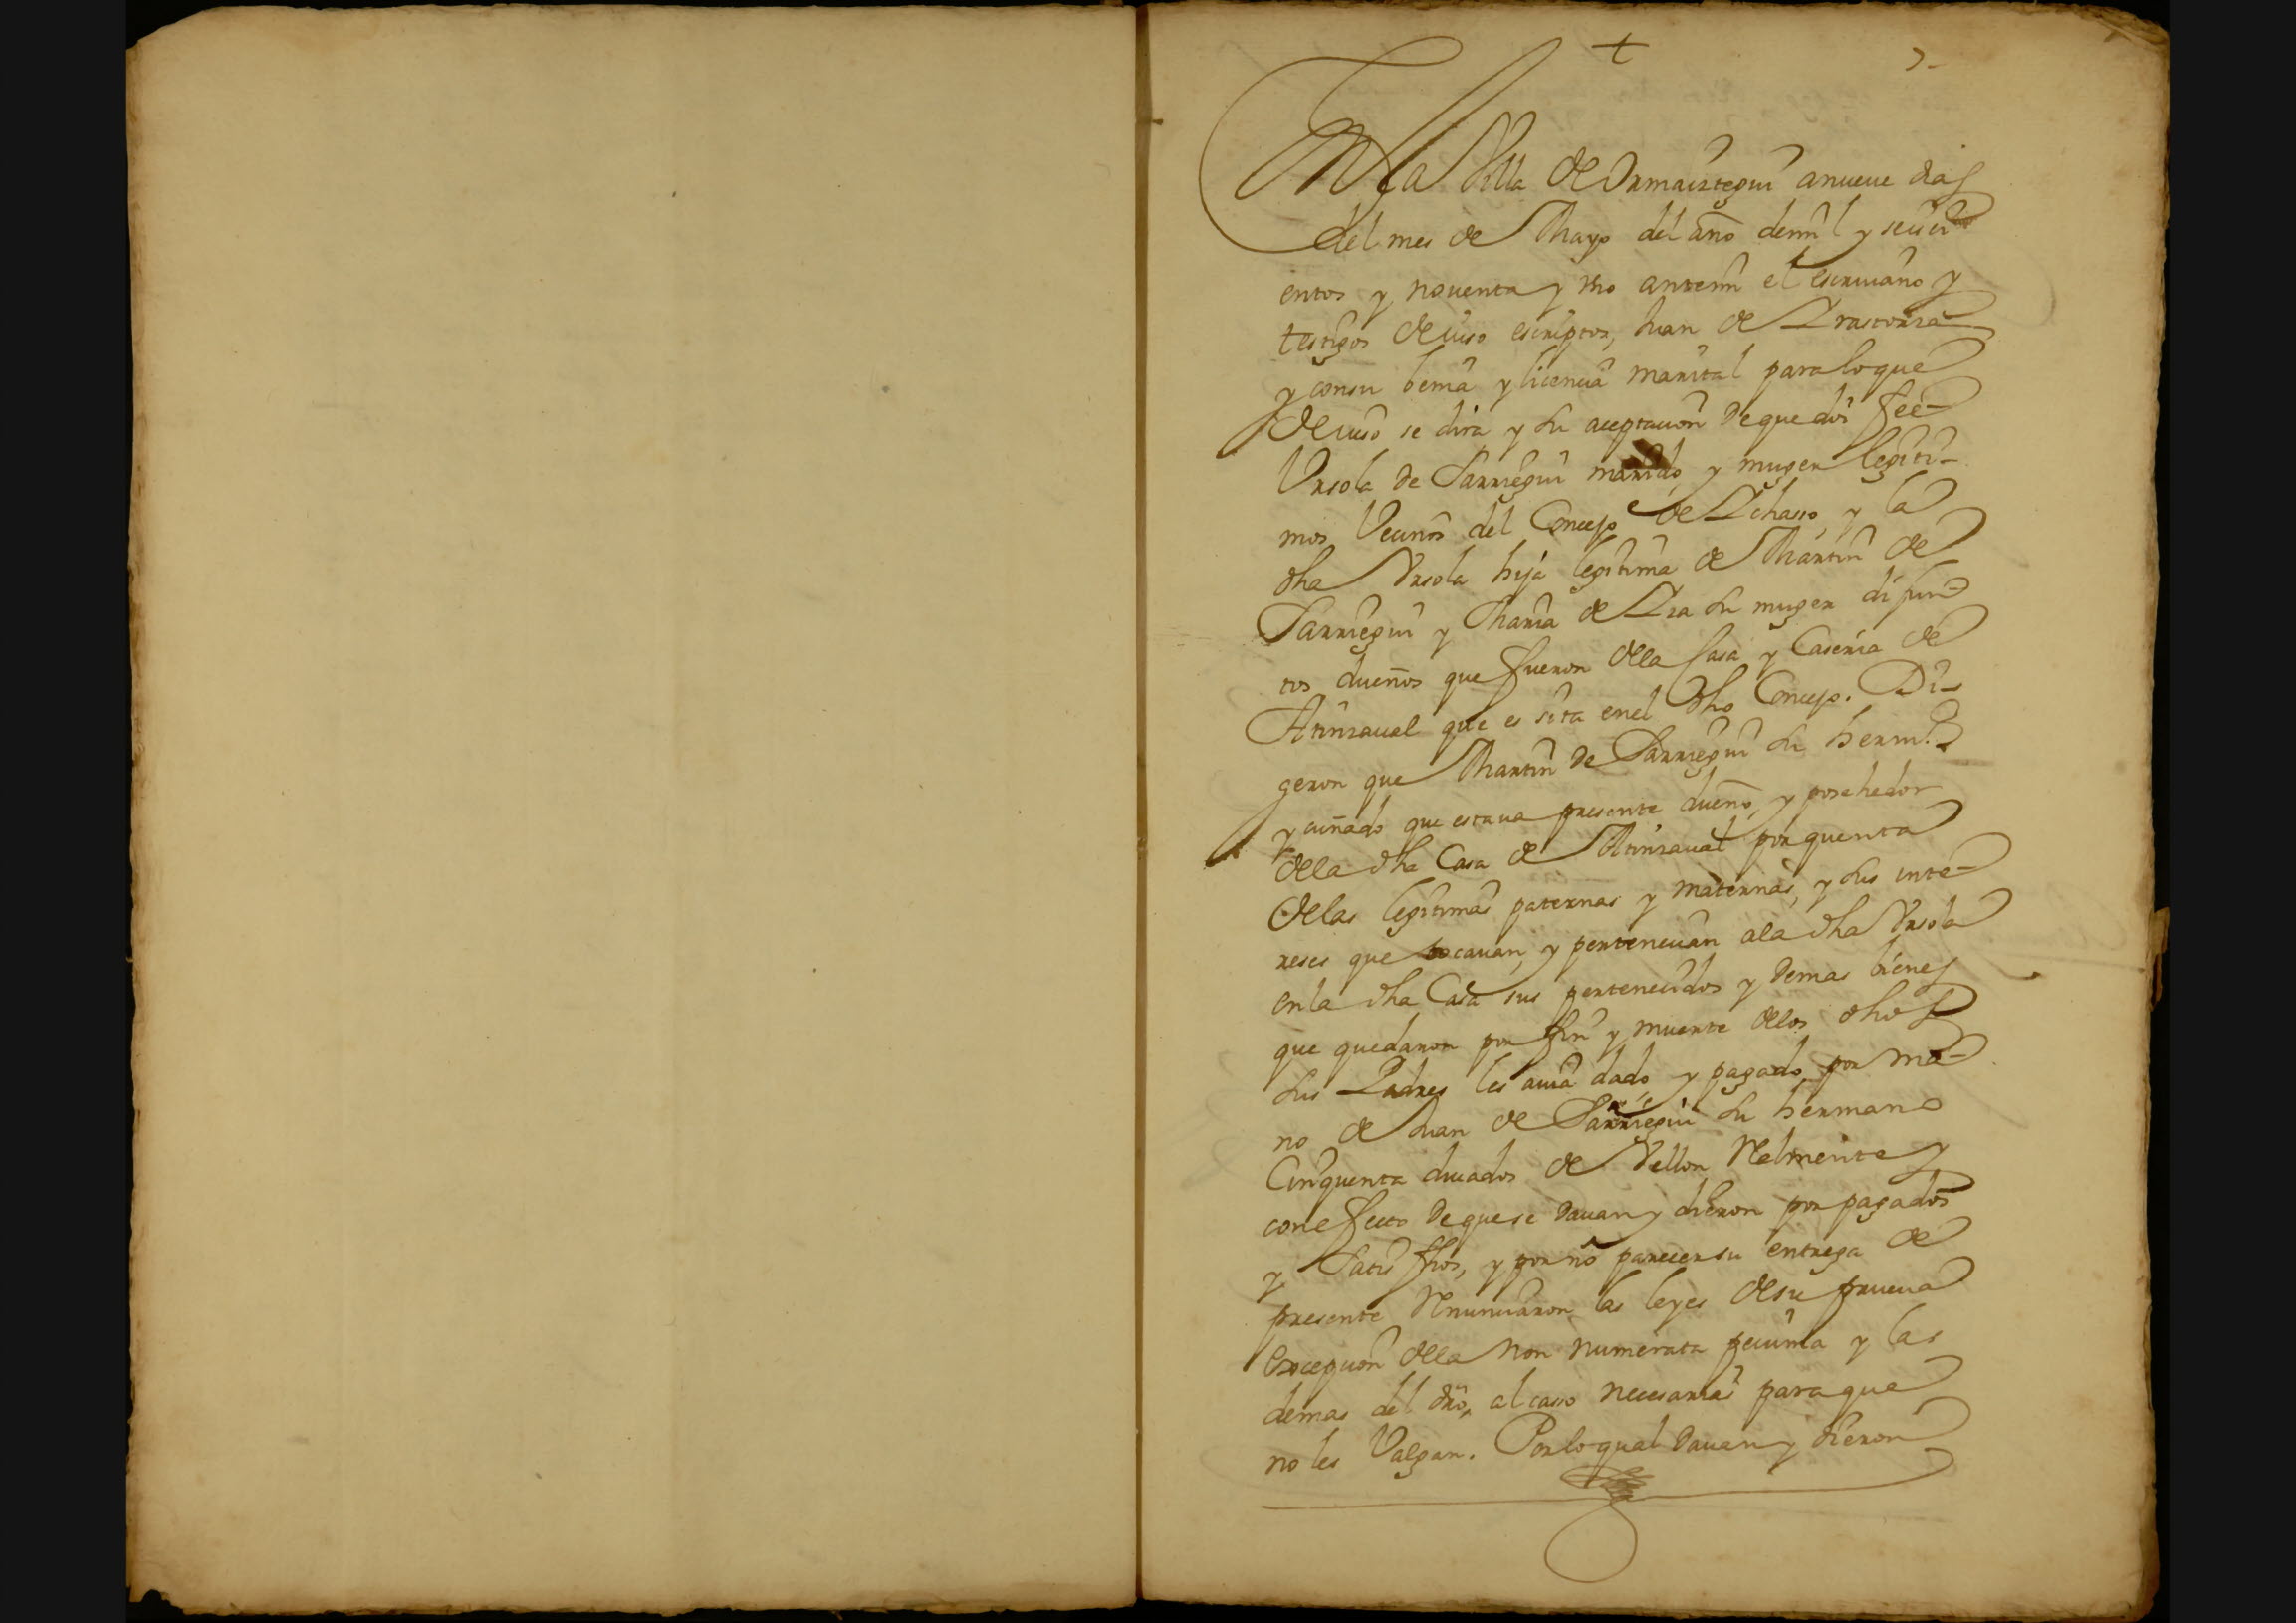 +
7-
En la Villa de Ormaiztegui a nueue dias
del mes de Mayo del año de mil y seisci
entos y nouenta y vno antemi el escriuano y
testigos de iuso escriptos, Juan de Arastorza
y con su benia y licencia marital para lo que
de iuso se dira y su aceptacion de que doi fee
Vrsola de Sarriegui marido, y muger legiti-
mos Vecinos del Concejo de Ichasso, y la
dha Vrsola hija legitima de Martin de
Sarriegui y Maria de Aza su muger difun-
tos dueños que fueron de la Casa y Caseria de
Atinzaual que es sita en el dho Concejo. Di-
geron que Martin de Sarriegui su herm.o
y cuñado que estaua presente dueño, y posehedor
de la dha Casa de Atinzaual por quenta
de las legitimas paternas y maternas, y sus inte-
reses que tocauan, y pertenecian a la dha Vrsola
en la dha Casa sus pertenecidos y demas bienes
que quedaron por fin y muerte de los dhos
sus Padres les auia dado, y pagado por ma-
no de Juan de Sarriegui su hermano
Cinquenta ducados de Vellon Relmente y
con efecto de que se dauan y dieron por pagados
y Satisfhos, y por no parecer su entrega de
presente Renunciaron las leyes de su prueua
excepcion de la non numerata pecunia y las
demas del dro, al caso necesarias para que
no les Valgan. Por lo qual dauan y dieron